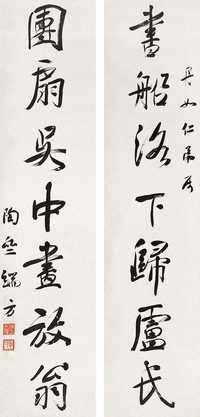 書船洛下歸盧
如仁弟屬
團扇吳中畫放翁
陶齋端方